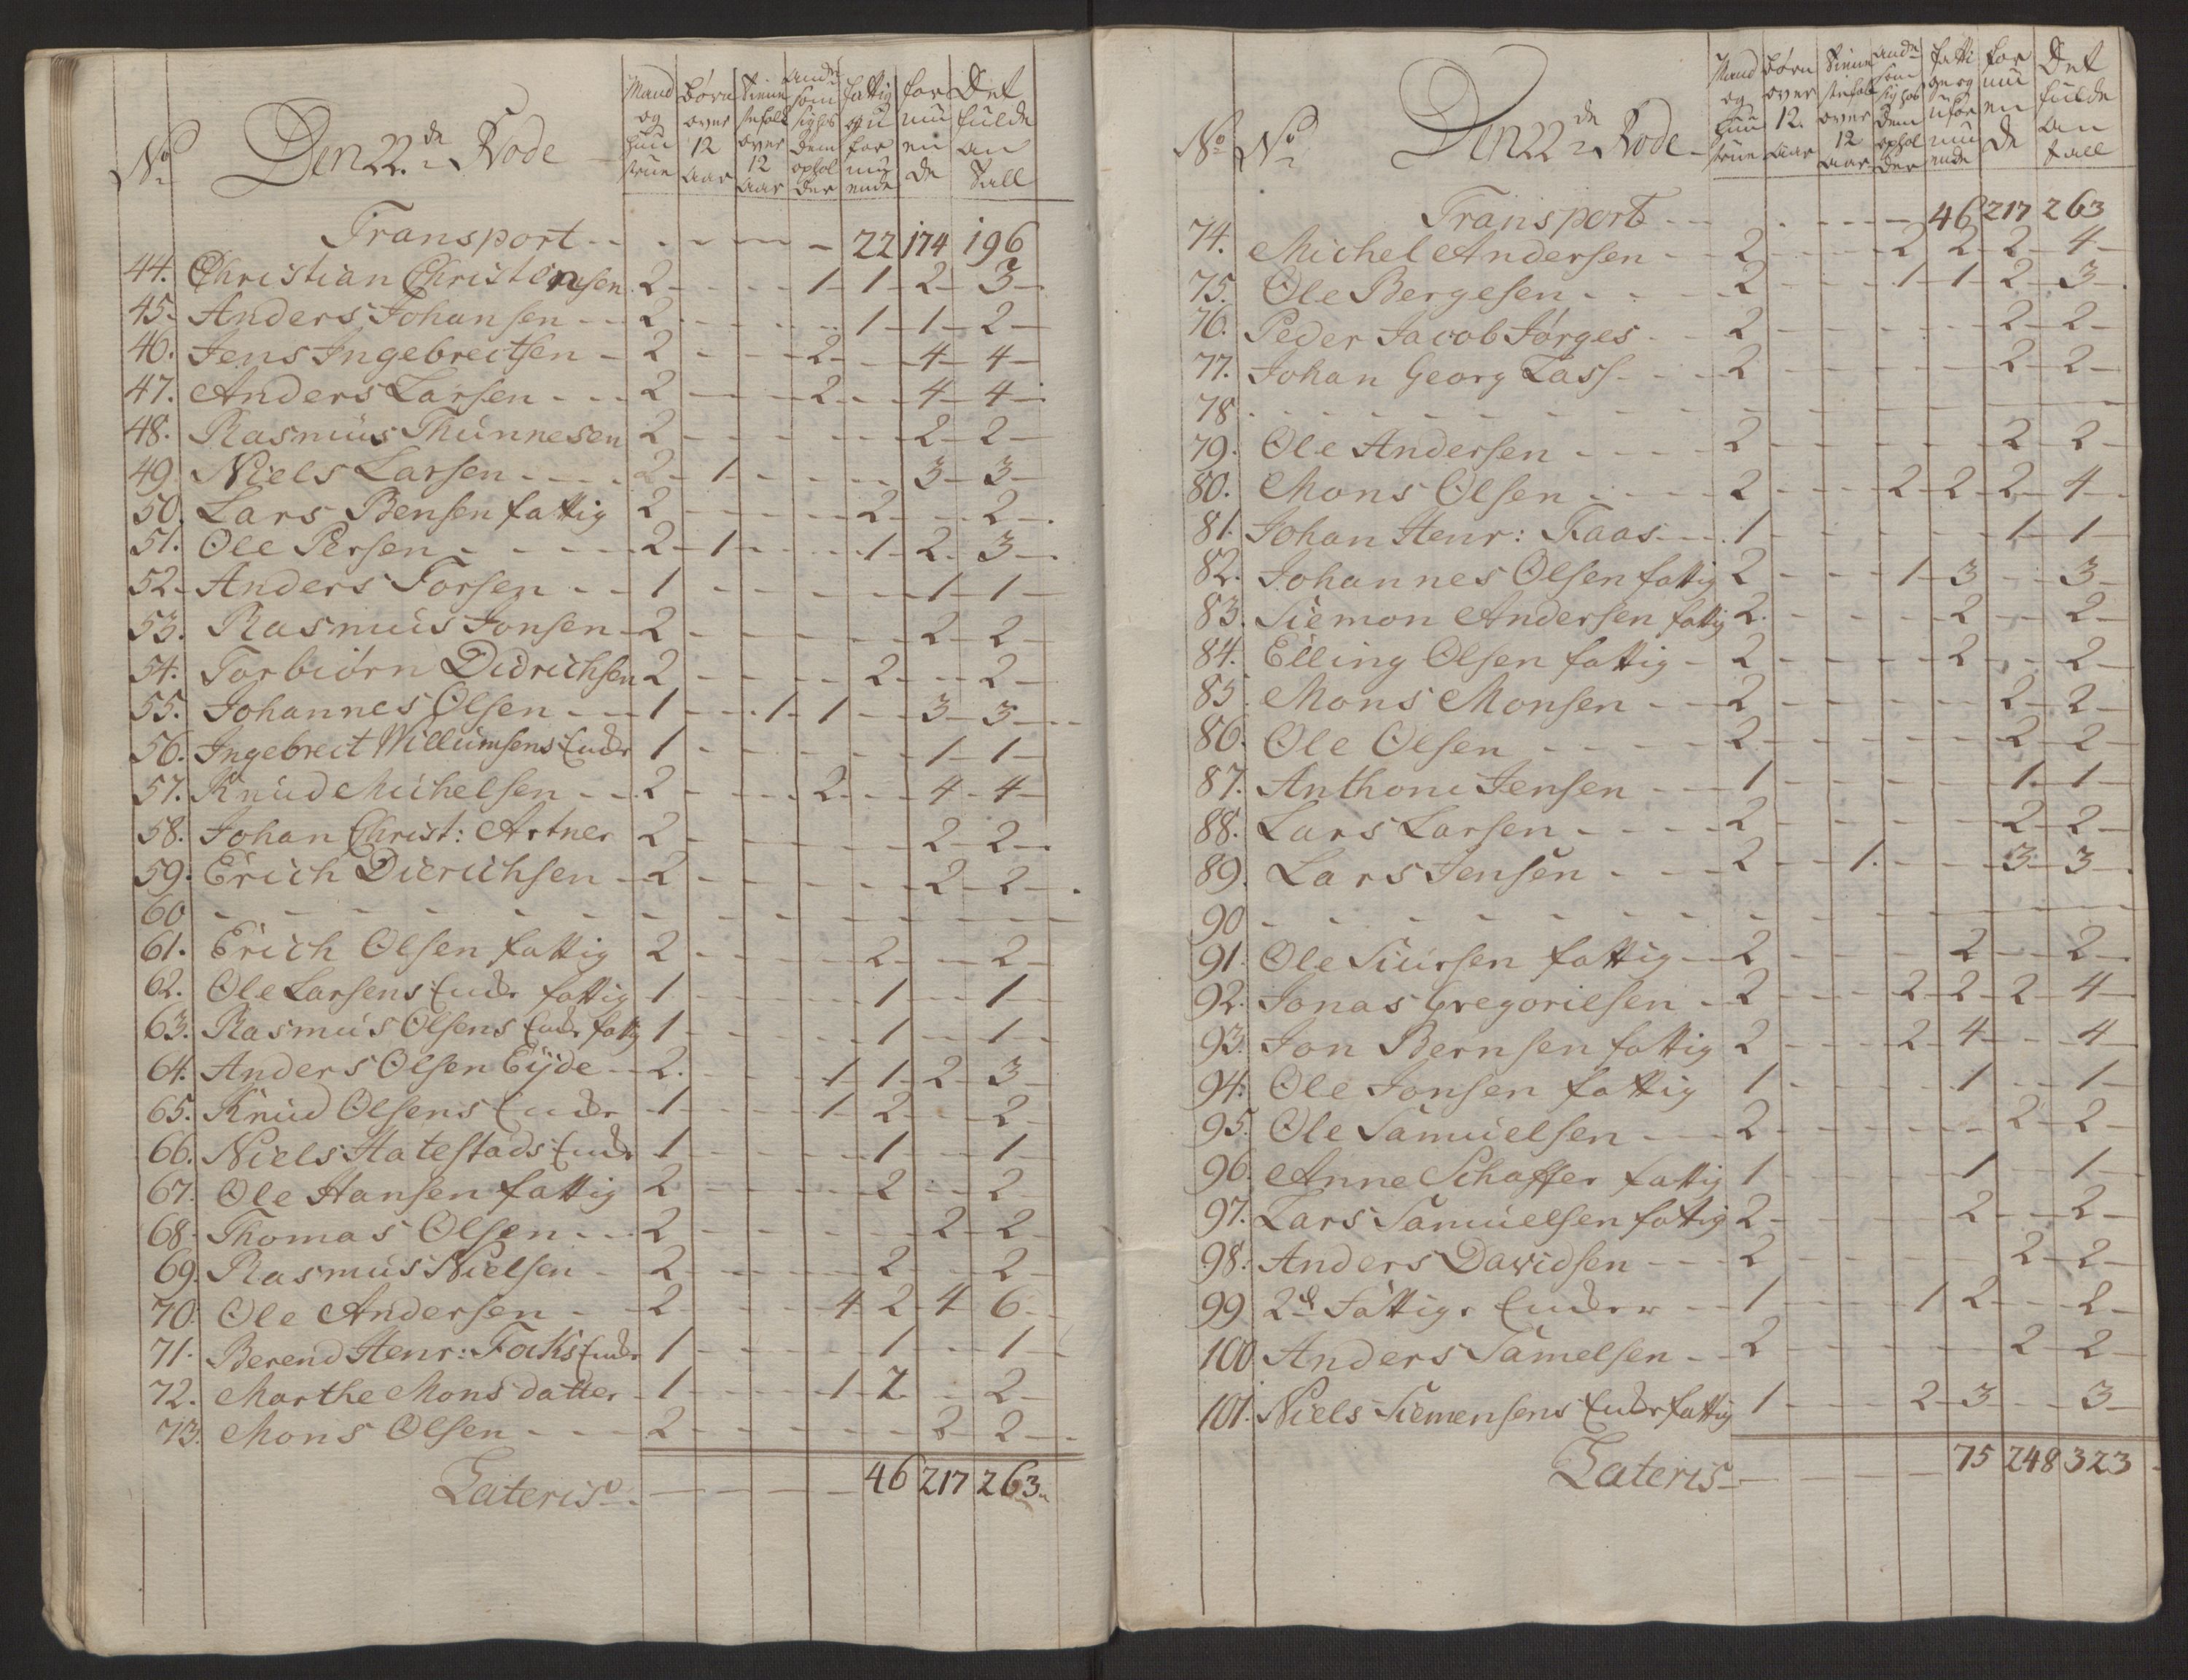 No Den 22.de Rode
Mand og Hustrue
Børn over 12 Aar
Tienestefolk over 12 Aar
Andre som sig hos dem opholder
fattig og uformuende
formuende
Det fulde Antall
Transport - - - - - 22 174 196
44. Christian Christensen 2 - - - 1 - 1 - 2 - 3
45. Anders Johansen - - 2 - - - - 1 - 1 - 2
46. Jens Ingebreitsen - 2 - - - 2 - - 4 - 4
47. Anders Larsen - - - 2 - - - 2 - - 4 - 4
48. Rasmus Thunnesen 2 - - - - - 2 - 2
49. Niels Larsen - - - 2 - 1 - - - - 3 - 3
50. Lars Bensen fattig 2 - - - - 2 - - 2
51. Ole Persen - - - - 2 - 1 - - - 1 - 2 - 3
52. Anders Torsen - - 1 - - - - - 1 - 1
53. Rasmus Jonsen - 2 - - - - - 2 - 2
54. Torbiørn Didrichsen 2 - - - - 2 - - 2
55. Johannes Olsen - - - 1 - - 1 - 1 - - 3 - 3
56. Ingebreit Willumsens Enke 1 - - - - - 1 - 1
57. Knud Michelsen - - 2 - - - 2 - - 4 - 4
58. Johan Christ: Artner 2 - - - - - 2 - 2
59. Erich Dicrichsen - 2 - - - - - 2 - 2
60 - - - - - - - - - - - - - -
61. Erich Olsen fattig 2 - - - - 2 - - 2
62. Ole Larsens Enke fattig 1 - - - - 1 - - 1
63. Rasmus Olsens Enke fattig 1 - - - - 1 - - 1
64. Anders Olsen Eyde - - 2 - - - 1 1 - 2 - 3
65. Knud Olsens Enke 1 - - - 1 - 2 - - 2
66. Niels Hatestads Enke 1 - - - - 1 - - 1
67. Ole Hansen fattig 2 - - - - 2 - - 2
68. Thomas Olsen - - - 2 - - - - - 2 - 2
69. Rasmus Nielsen - 2 - - - - 2 - - 2
70. Ole Andersen - - 2 - - - 4 2 - 4 6
71. Berend Henr: Focks Enke 1 - - - - 1 - - 1
72. Marthe Mons datter - 1 - - - 1 - 2 - - 2
73. Mons Olsen - - - 2 - - - - - 2 - 2
Lateris - - - - - 46 217 263
No No Den 22de Rode
Mand og Hustrue
Børn over 12. Aar
Tienestefolk over 12 Aar
Andre som sig hos dem opholder
fattige og uformuende
formuende
Det fulde Antall
Transport - - - - - 46 217 263
74. Michel Andersen - - 2 - - - 2 2 - 2 - 4
75. Ole Bergesen - - - 2 - - - 1 - 1 - 2 - 3
76. Peder Jacob Jørges - - 2 - - - - - 2 - 2
77. Johan Georg Lass - - - 2 - - - - - 2 - 2
78 - - - - - - - - - - - - - -
79. Ole Andersen - - - - 2 - - - - - 2 - 2
80. Mons Olsen - - - - 2 - - - 2 - 2 - 2 - 4
81. Johan Henr: Kaas - - - 1 - - - - - 1 - 1
82. Johannes Olsen fattig 2 - - - 1 - 3 - - 3
83. Siemon Andersen fattig 2 - - - - 2 - - 2
84. Elling Olsen fattig - 2 - - - - 2 - - 2
85. Mons Monsen - - - 2 - - - - - 2 - 2
86. Ole Olsen - - - - 2 - - - - - 2 - 2
87. Anthoni Jensen - - - 1 - - - - - 1 - 1
88. Lars Larsen - - - - 2 - - - - - 2 - 2
89. Lars Jensen - - - 2 - - 1 - - - 3 - 3
90 - - - - - - - - - - - - - -
91. Ole Siursen fattig - - 2 - - - - 2 - - 2
92. Jonas Gregorilsen - 2 - - - 2 - 2 - 2 - 4
93. Jon Bernsen fattig 2 - - - 2 - 4 - - 4
94. Ole Jonsen fattig 1 - - - - 1 - - 1
95. Ole Samuelsen - - - 2 - - - - - 2 - 2
96. Anne Schaffer fattig 1 - - - - 1 - - 1
97. Lars Samuelsen fattig 2 - - - - 2 - - 2
98. Anders Davidsen - - - 2 - - - - - 2 - 2
99 2de Fattige Enker - - 1 - - - 1 2 - - 2
100 Anders Samelsen - - 2 - - - - - 2 - 2
101. Niels Siemensens Enke fattig 1 - - - 2 - 3 - - 3
Lateris - - - - - 75 248 323